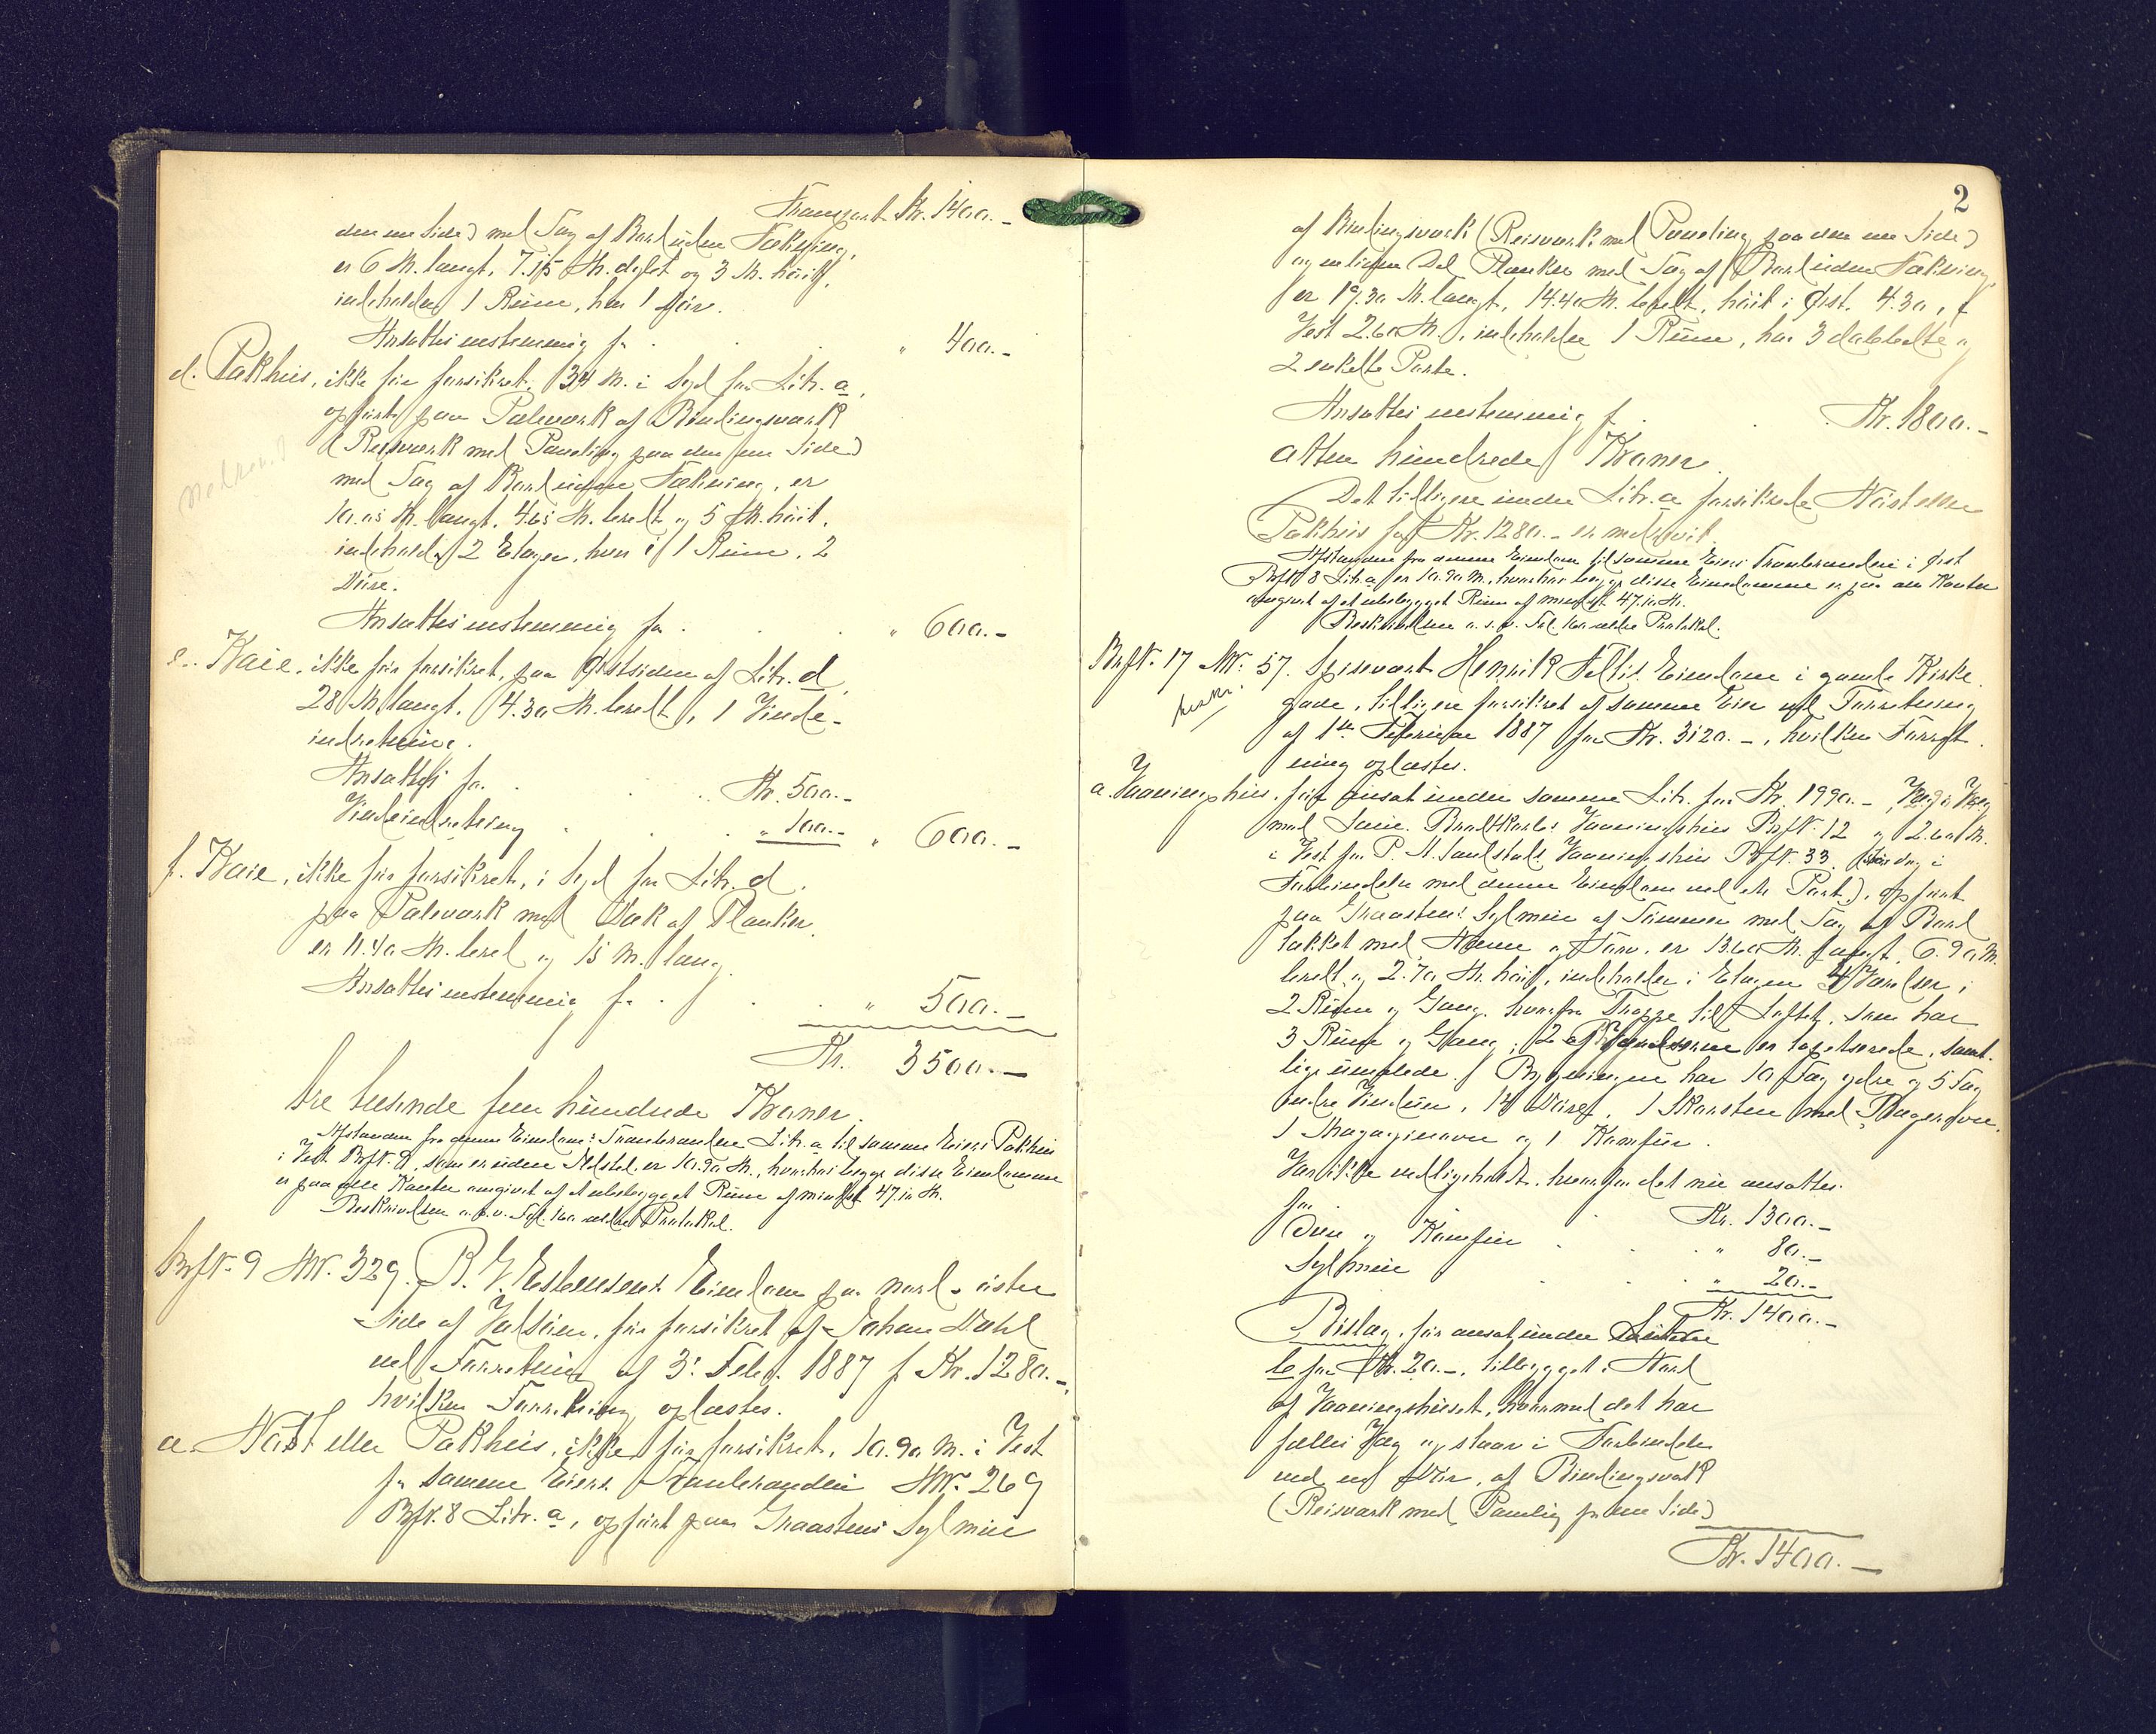 Transport Kr. 1400.-
den ene Side) med Tag af Bord uden Tækning,
er 6 M. langt, 7.15 M. dybt og 3 M. høit,
indeholder 1 Rum, har 1 Dør.
Ansattes enstemmig for . . . " 400.-
d. Pakhus, ikke før forsikret, 34 M. i Syd for Litr. a,
opført paa Pæleværk af Bindingsværk
(Reisværk med Paneling paa den ene Side)
med Tag af Bord uden Tækning, er
10.05 M. langt, 4.65 M. bredt og 5 M. høit,
indeholder 2 Etager, hver i 1 Rum, 2
Døre.
Ansattes enstemmig for . . . " 600.-
e. Kaie, ikke før forsikret, paa Østsiden af Litr. d,
28 M. langt, 4.30 M. bredt, 1 Vinde-
indretning.
Ansattes for . . . Kr. 500.-
Vindeindretning . . . " 100.- " 600.-
f. Kaie, ikke før forsikret, i Syd for Litr. d,
paa Pæleværk med Dæk af Planker,
er 11.40 M. bred og 15 M. lang.
Ansattes enstemmig for . . . " 500.-
Kr. 3500.-
tre tusende fem hundrede Kroner.
Afstanden fra denne Eiendoms Tranbrænderi Litr. a til samme Eiers Pakhus
i Vest Brf№ 9, som er uden Ildsted, er 10.90 M., hvorhos begge disse Eiendomme
er paa alle Kanter omgivet af et ubebygget Rum af mindst 47.10 M.
Beskrivelsen o.s.v. Fol. 160 ældre Protokol.
Brf№ 9 M№ 329. B. G. Estensens Eiendom paa nord-østre
Side af Vulsøen, før forsikret af Johan Dahl
ved Forretning af 3. Febr. 1887 for Kr. 1280.-,
hvilken Forretning oplæstes.
a. Nøst eller Pakhus, ikke før forsikret, 10.90 M. i Vest
for samme Eiers Tranbrænderi M№ 269
Brf№ 8 Litr. a, opført paa Graastens Sylmur
2
af Bindingsværk (Reisværk med Paneling paa den ene Side)
og en liden Del Planker med Tag af Bord uden Tækning,
er 19.30 M. langt, 14.40 M. bredt, høit i Øst 4.30, i
Vest 2.60 M., indeholder 1 Rum, har 3 dobbelte og
2 enkelte Porte.
Ansattes enstemmig for . . . Kr. 1800.-
atten hundrede Kroner.
Det tidligere under Litr. a forsikrede Nøst eller
Pakhus for Kr. 1280.- er nedrevet.
Afstanden fra denne Eiendom til samme Eiers Tranbrænderi i Øst
Brf№ 8 Litr. a er 10.90 M., hvorhos begge disse Eiendomme er paa alle Kanter
omgivet af et ubebygget Rum af mindst 47.10 M.
Beskrivelsen o.s.v. Fol. 160 ældre Protokol.
Brf№ 17 M№ 57. Spisevært Henrik Eiendom i gamle Kirke-
gade, tidligere forsikret af samme Eier ved Forretning
af 1ste Februar 1887 for Kr. 3120.-, hvilken Forret-
ning oplæstes.
a. Vaaningshus, før ansat under samme Litr. for Kr. 1990.-, Væg i Væg
med Vaaningshus Brf№ 12 og 2.60 M.
i Vest for P. Vaaningshus Brf№ 33 (
Forbindelse med denne Eiendom ved en Port), opført
paa Graastens Sylmur af Tømmer med Tag af Bord
tækket med Næver og Torv, er 13.60 M. langt, 6.90 M.
bredt og 2.70 M. høit, indeholder i Etagen 4 Værelser,
2 Rum og Gang, hvorfra Trappe til Loftet, som har
3 Rum og Gang; 2 af Værelserne er tapetserede, samt-
lige umalede. Bygningen har 10 Fag ydre og 5 Fag
indre Vinduer, 14 Døre, 1 Skorsten med Bagerovn,
1 Magasinovn og 1 Komfur.
Var ikke vedligeholdt, hvorfor det nu ansattes
for . . . Kr. 1300.-
Ovn og Komfur . . . " 80.-
Sylmur . . . " 20.-
Kr. 1400.-
Bislag, før ansat under
b for Kr. 20.-, tilbygget i Nord
af Vaaningshuset, hvormed det har
fælles Væg og staar i Forbindelse
med ved Dør, af Bindingsværk
(Reisværk med Paneling paa ene Side)
Kr. 1400.-